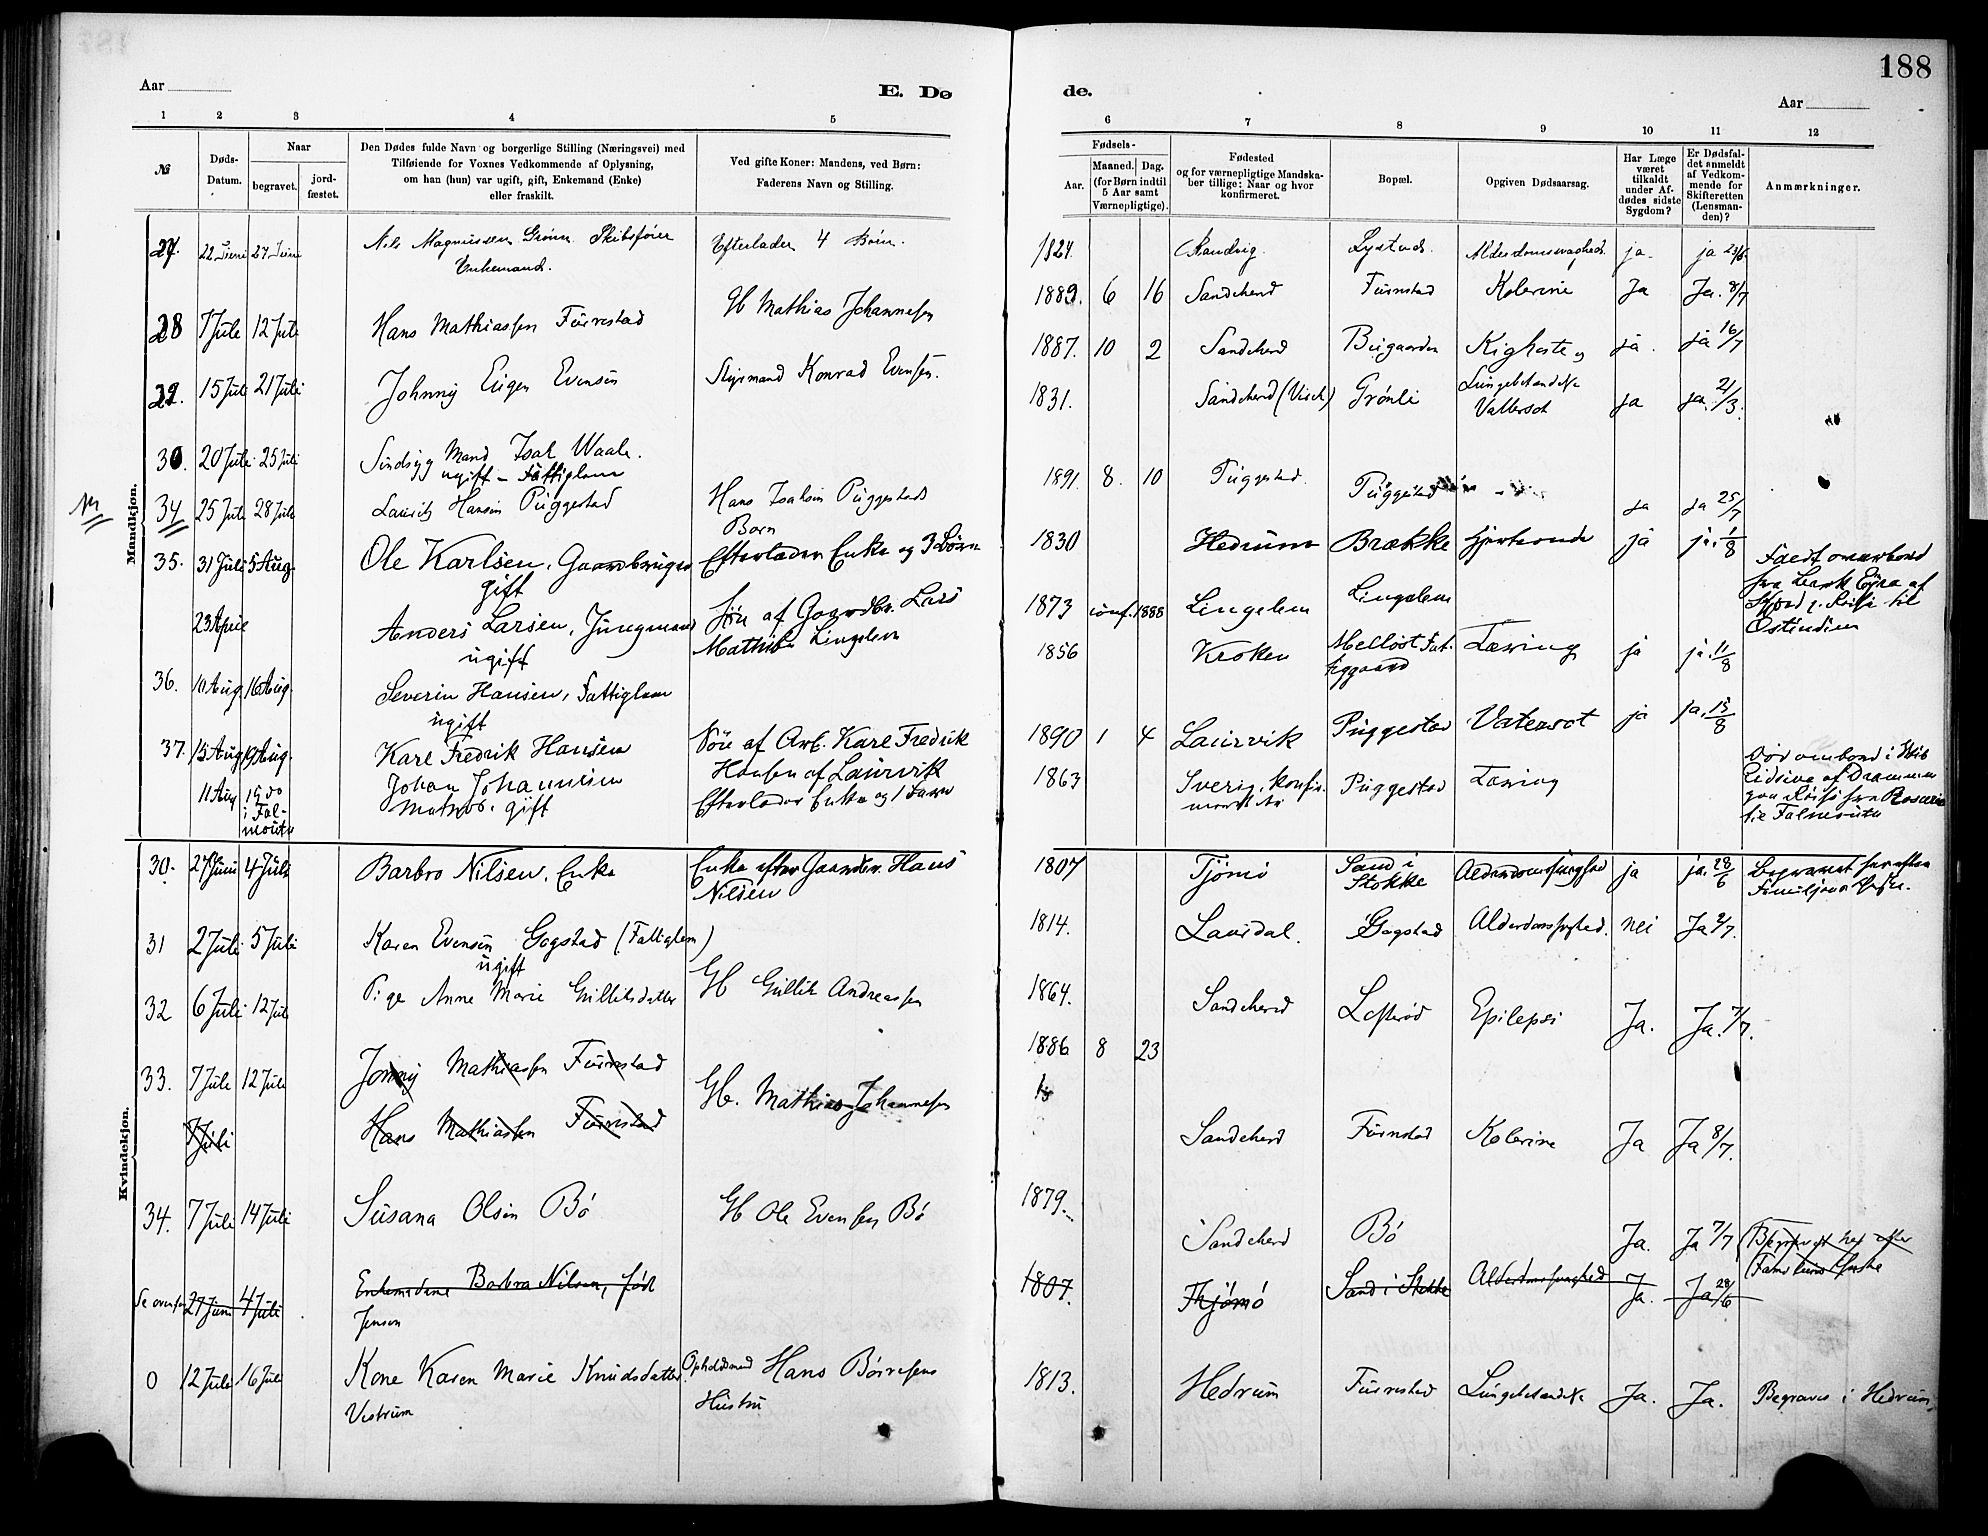 188
Aar
E. Dø
de.
Aar
1 2 3 4 5 6 7 8 9 10 11 12
№
Døds-
Datum.
Naar
begravet.
jord-
fæstet.
Den Dødes fulde Navn og borgerlige Stilling (Næringsvei) med
Tilføiende for Voxnes Vedkommende af Oplysning,
om han (hun) var ugift, gift, Enkemand (Enke)
eller fraskilt.
Ved gifte Koner: Mandens, ved Børn:
Faderens Navn og Stilling.
Fødsels-
Aar.
Maaned. Dag.
(for Børn indtil
5 Aar samt
Værnepligtige).
Fødested
og for værnepligtige Mandska-
ber tillige: Naar og hvor
konfirmeret.
Bopæl.
Opgiven Dødsaarsag.
Har Læge
været
tilkaldt
under Af-
dødes sidste
Sygdom?
Er Dødsfal-
det anmeldt
af Vedkom-
mende for
Skifteretten
(Lensman-
den)?
Anmærkninger.
Mandkjøn.
27. 22 Juni 27 Juni Nils Magnussen Grønn Skibsfører Efterlader 4 Børn. 1824. Sandvig. Lystad. Alderdomssvaghed. ja. ja 23/6
Enkemand.
28 7 Juli 12 Juli Hans Mathiassen Furrestad Gb Mathias Johannesen 1889. 6 16 Sandeherd Furustad Kolerine Ja Ja. 8/7
29. 15 Juli 21 Juli Johnny Eugen Evensen Styrmand Konrad Evensen. 1887. 10 2 Sandeherd Bugaarden Kighoste og ja. ja 16/7
Lungebetændelse
30. 20 Juli 25 Juli Sindsyg Mand Isak Waale. 1831. Sandeherd Grønli Vattersot ja ja 21/3.
ugift – Fattiglem
34 25 Juli 28 Juli Laurits Hansen Puggestad Hans Isaksen Puggestads 1891. 8. 10 Puggestad. Puggestad Ja Ja 25/7
Barn
35. 31 Juli 5 Aug. Ole Karlsen, Gaardbruger Efterlader Enke og 3 Børn 1830 Hedrum Brække hjerteonde ja ja. 1/8
gift
23 April Anders Larsen, Jungmand Søn af Gaardbr. Lars 1873 conf. 1888 Lingelem Lingelem
ugift Mathias Lingelem
Faldt overbord
fra Bark Ezra af
p. Reise til
Ostindien
36. 10 Aug. 16 Aug. Severin Hansen, Fattiglem 1856 Kroken Melløst Fat- Tæring ja ja. 11/8
ugift tiggaard
37. 15 Aug. 19 Aug. Karl Fredrik Hansen Søn af Arb. Karl Fredrik 1890 1 4 Laurvik Puggestad Vatersot ja ja. 15/8
Hansen af Laurvik
11 Aug i Fal- Johan Johannesen Efterlader Enke og 1 Barn 1863 Sverig, konfir- Puggestad Tæring
mouth Matros. gift
Død ombord i Skib
af Drammen
paa Reise fra Rosario
til Falmouth
Kvindekjøn.
30. 27 Juni 4 Juli Barbro Nilsen, Enke Enke efter Gaardbr. Hans 1807 Tjømø Sand i Alderdomssvaghed ja ja. 28/6 Begravet her efter
Nilsen Stokke Familjens Ønske.
31 2 Juli 5 Juli Karen Evensen Gogstad (Fattiglem) 1814. Laurdal. Gogstad Alderdomssvaghed. nei Ja 2/7.
ugift
32 6 Juli 12 Juli Pige Anne Marie Gulliksdatter Gb Gullik Andreassen 1864. Sandeherd Lofterød Epilepsi Ja. Ja. 7/7.
33. 7 Juli 12 Juli Jonny Mathiassen Furrestad Gb. Mathias Johannesen 1886 8 23 Sandeherd Furustad Kolerine Ja Ja 8/7.
7 Juli Hans Mathiassen Furrestad
34. 7 Juli 14 Juli Susana Olsen Bø Gb Ole Evensen Bø 1879. Sandeherd Bø Ja. Ja 7/7 Begravet her efter
Familiens Ønske
Se ovenfor 27 Juni 4 Juli Enkemadame Barbra Nilsen, født 1807. Thjømø Sand i Stokke Alderdomssvaghed Ja. Ja 28/6
Jensen
0 12 Juli 16 Juli Kone Karen Marie Knudsdatter Opholdsmand Hans Børresens 1813. Hedrum Furrestad Lungebetændelse Ja. Ja. Begraves i Hedrum.
Vestrum Hustru